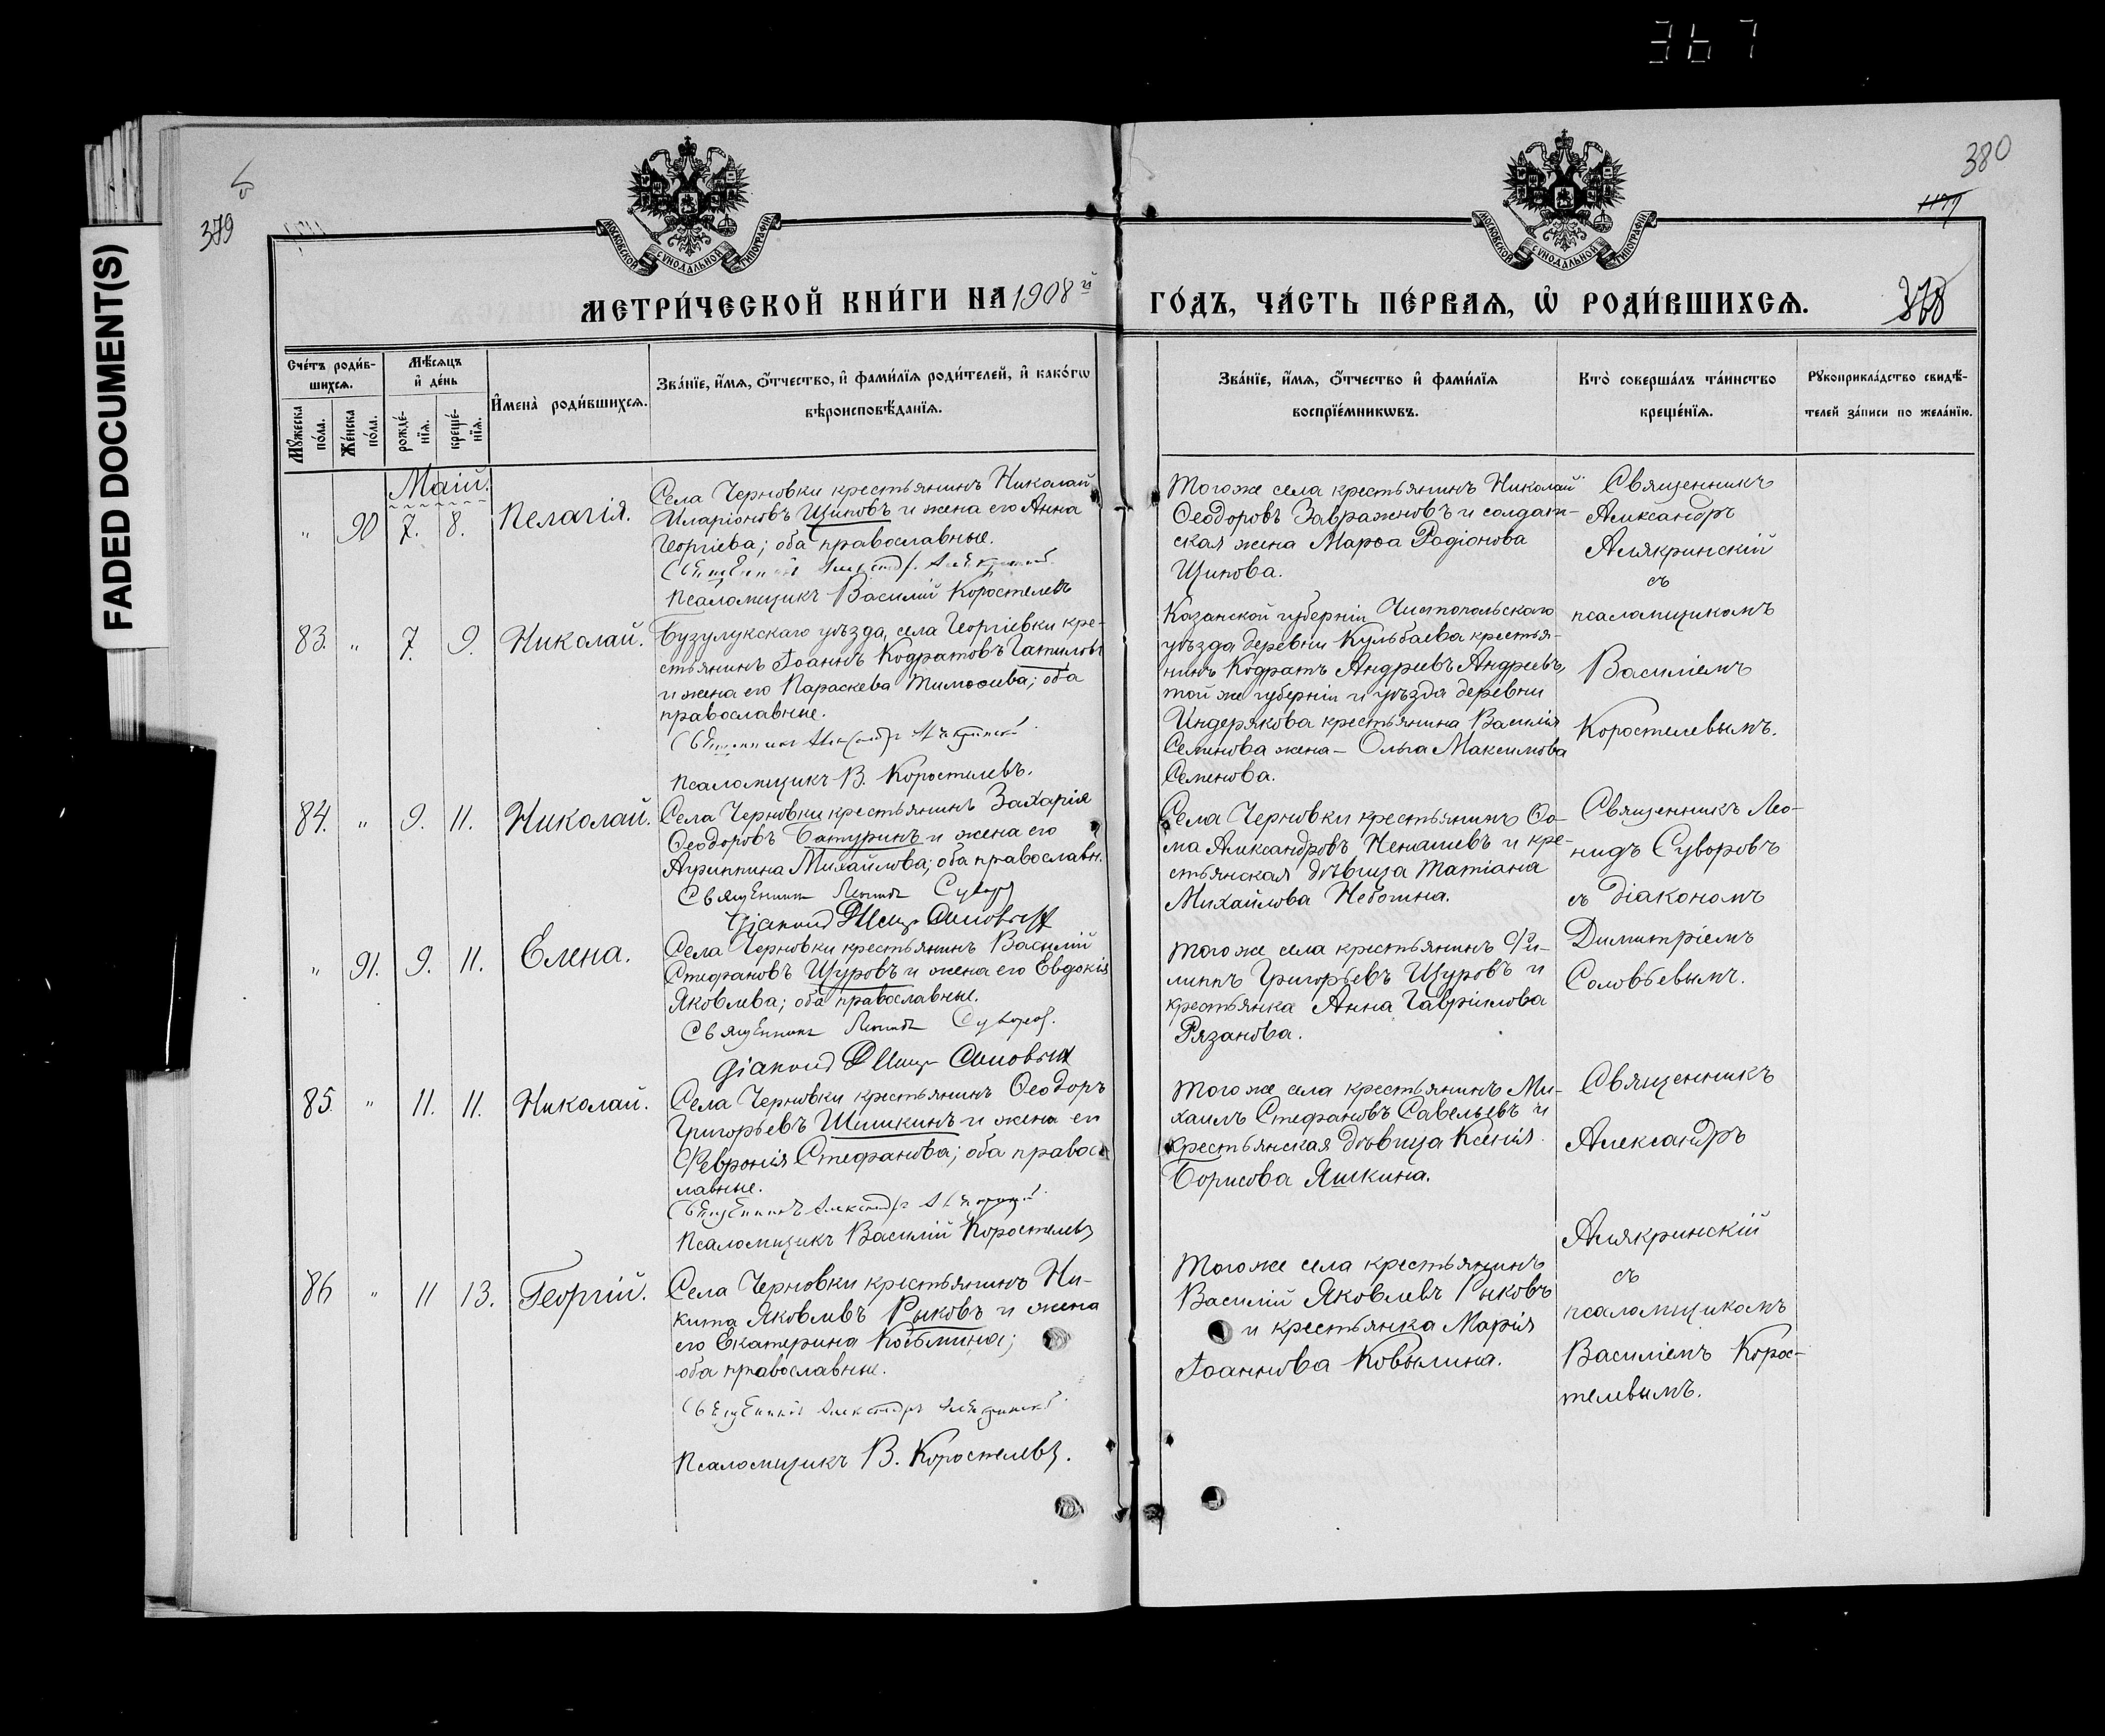 367
FADED DOCUMENT(S)
379
380
МОСКОВСКОЙ СѴНОДАЛЬНОЙ ТИПОГРАФІИ
МОСКОВСКОЙ СѴНОДАЛЬНОЙ ТИПОГРАФІИ
МЕТРИ́ЧЕСКОЙ КНИ́ГИ НА 1908й
ГО́ДЪ, ЧА́СТЬ ПЕ́РВАѦ, Ѽ РОДИ́ВШИХСѦ.
Сче́тъ роди́в-
шихсѧ.
Мѣ́сѧцъ
и҆ де́нь
Мꙋ́жеска по́ла.
Же́нска по́ла.
рожде́-
нїѧ.
креще́-
нїѧ.
И҆мена̀ роди́вшихсѧ.
Зва́нїе, и҆́мѧ, ѻ҆́тчество, и҆ фами́лїѧ роди́телей, и҆ како́гѡ
вѣроисповѣ́данїѧ.
Зва́нїе, и҆́мѧ, ѻ҆́тчество и҆ фами́лїѧ
воспрїе́мникѡвъ.
Кто̀ соверша́лъ та́инство
креще́нїѧ.
Рꙋкоприкла́дство свидѣ́-
телей за́писи по жела́нїю.
Маій.
" 90 7. 8. Пелагія.
Села Черновки крестьянинъ Николай
Иларіоновъ Щиповъ и жена его Анна
Георгіева; оба православные.
Псаломщикъ Василій Коростелевъ
Того же села крестьянинъ Николай
Ѳеодоровъ Завражновъ и солдат-
ская жена Марѳа Родіонова
Щипова.
Священникъ
Александръ
Алякринскій
съ
псаломщикомъ
Василіемъ
Коростелевымъ.
83. " 7. 9. Николай.
Бузулукскаго уѣзда, села Георгіевки кре-
стьянинъ Іоаннъ Кодратовъ Гатиловъ
и жена его Параскева Тимоѳеева; оба
православные.
Псаломщикъ В. Коростелевъ.
Казанской губерніи Чистопольскаго
уѣзда деревни Кульбаева крестья-
нинъ Кодратъ Андреевъ Андреевъ,
той же губерніи и уѣзда деревни
Индерякова крестьянина Василія
Семенова жена - Ольга Максимова
Семенова.
84. " 9. 11. Николай.
Села Черновки крестьянинъ Захарія
Ѳеодоровъ Батуринъ и жена его
Агриппина Михайлова; оба православн.
Священникъ Леонидъ Суворовъ
Села Черновки крестьянинъ Ѳо-
ма Александровъ Ненашевъ и кре-
стьянская дѣвица Татіана
Михайлова Неботина.
Священникъ Лео-
нидъ Суворовъ
съ діакономъ
Димитріемъ
Соловьевымъ.
" 91. 9. 11. Елена.
Села Черновки крестьянинъ Василій
Стефановъ Щуровъ и жена его Евдокія
Яковлева; оба православные.
Священникъ Леонидъ Суворовъ.
Того же села крестьянинъ Фи-
липпъ Григорьевъ Щуровъ и
крестьянка Анна Гавріилова
Рязанова.
85. " 11. 11. Николай.
Села Черновки крестьянинъ Ѳеодоръ
Григорьевъ Шишкинъ и жена его
Февронія Стефанова; оба правос-
лавные.
Псаломщикъ Василій Коростелевъ
Того же села крестьянинъ Ми-
хаилъ Стефановъ Савельевъ и
крестьянская дѣвица Ксенія
Борисова Яшкина.
Священникъ
Александръ
Алякринскій
съ
псаломщикомъ
Василіемъ Корос-
телевымъ.
86 " 11 13. Георгій.
Села Черновки крестьянинъ Ни-
кита Яковлевъ Рыковъ и жена
его Екатерина Косьмина;
оба православные.
Псаломщикъ В. Коростелевъ.
Того же села крестьянинъ
Василій Яковлевъ Рыковъ
и крестьянка Марія
Іоаннова Ковылина.